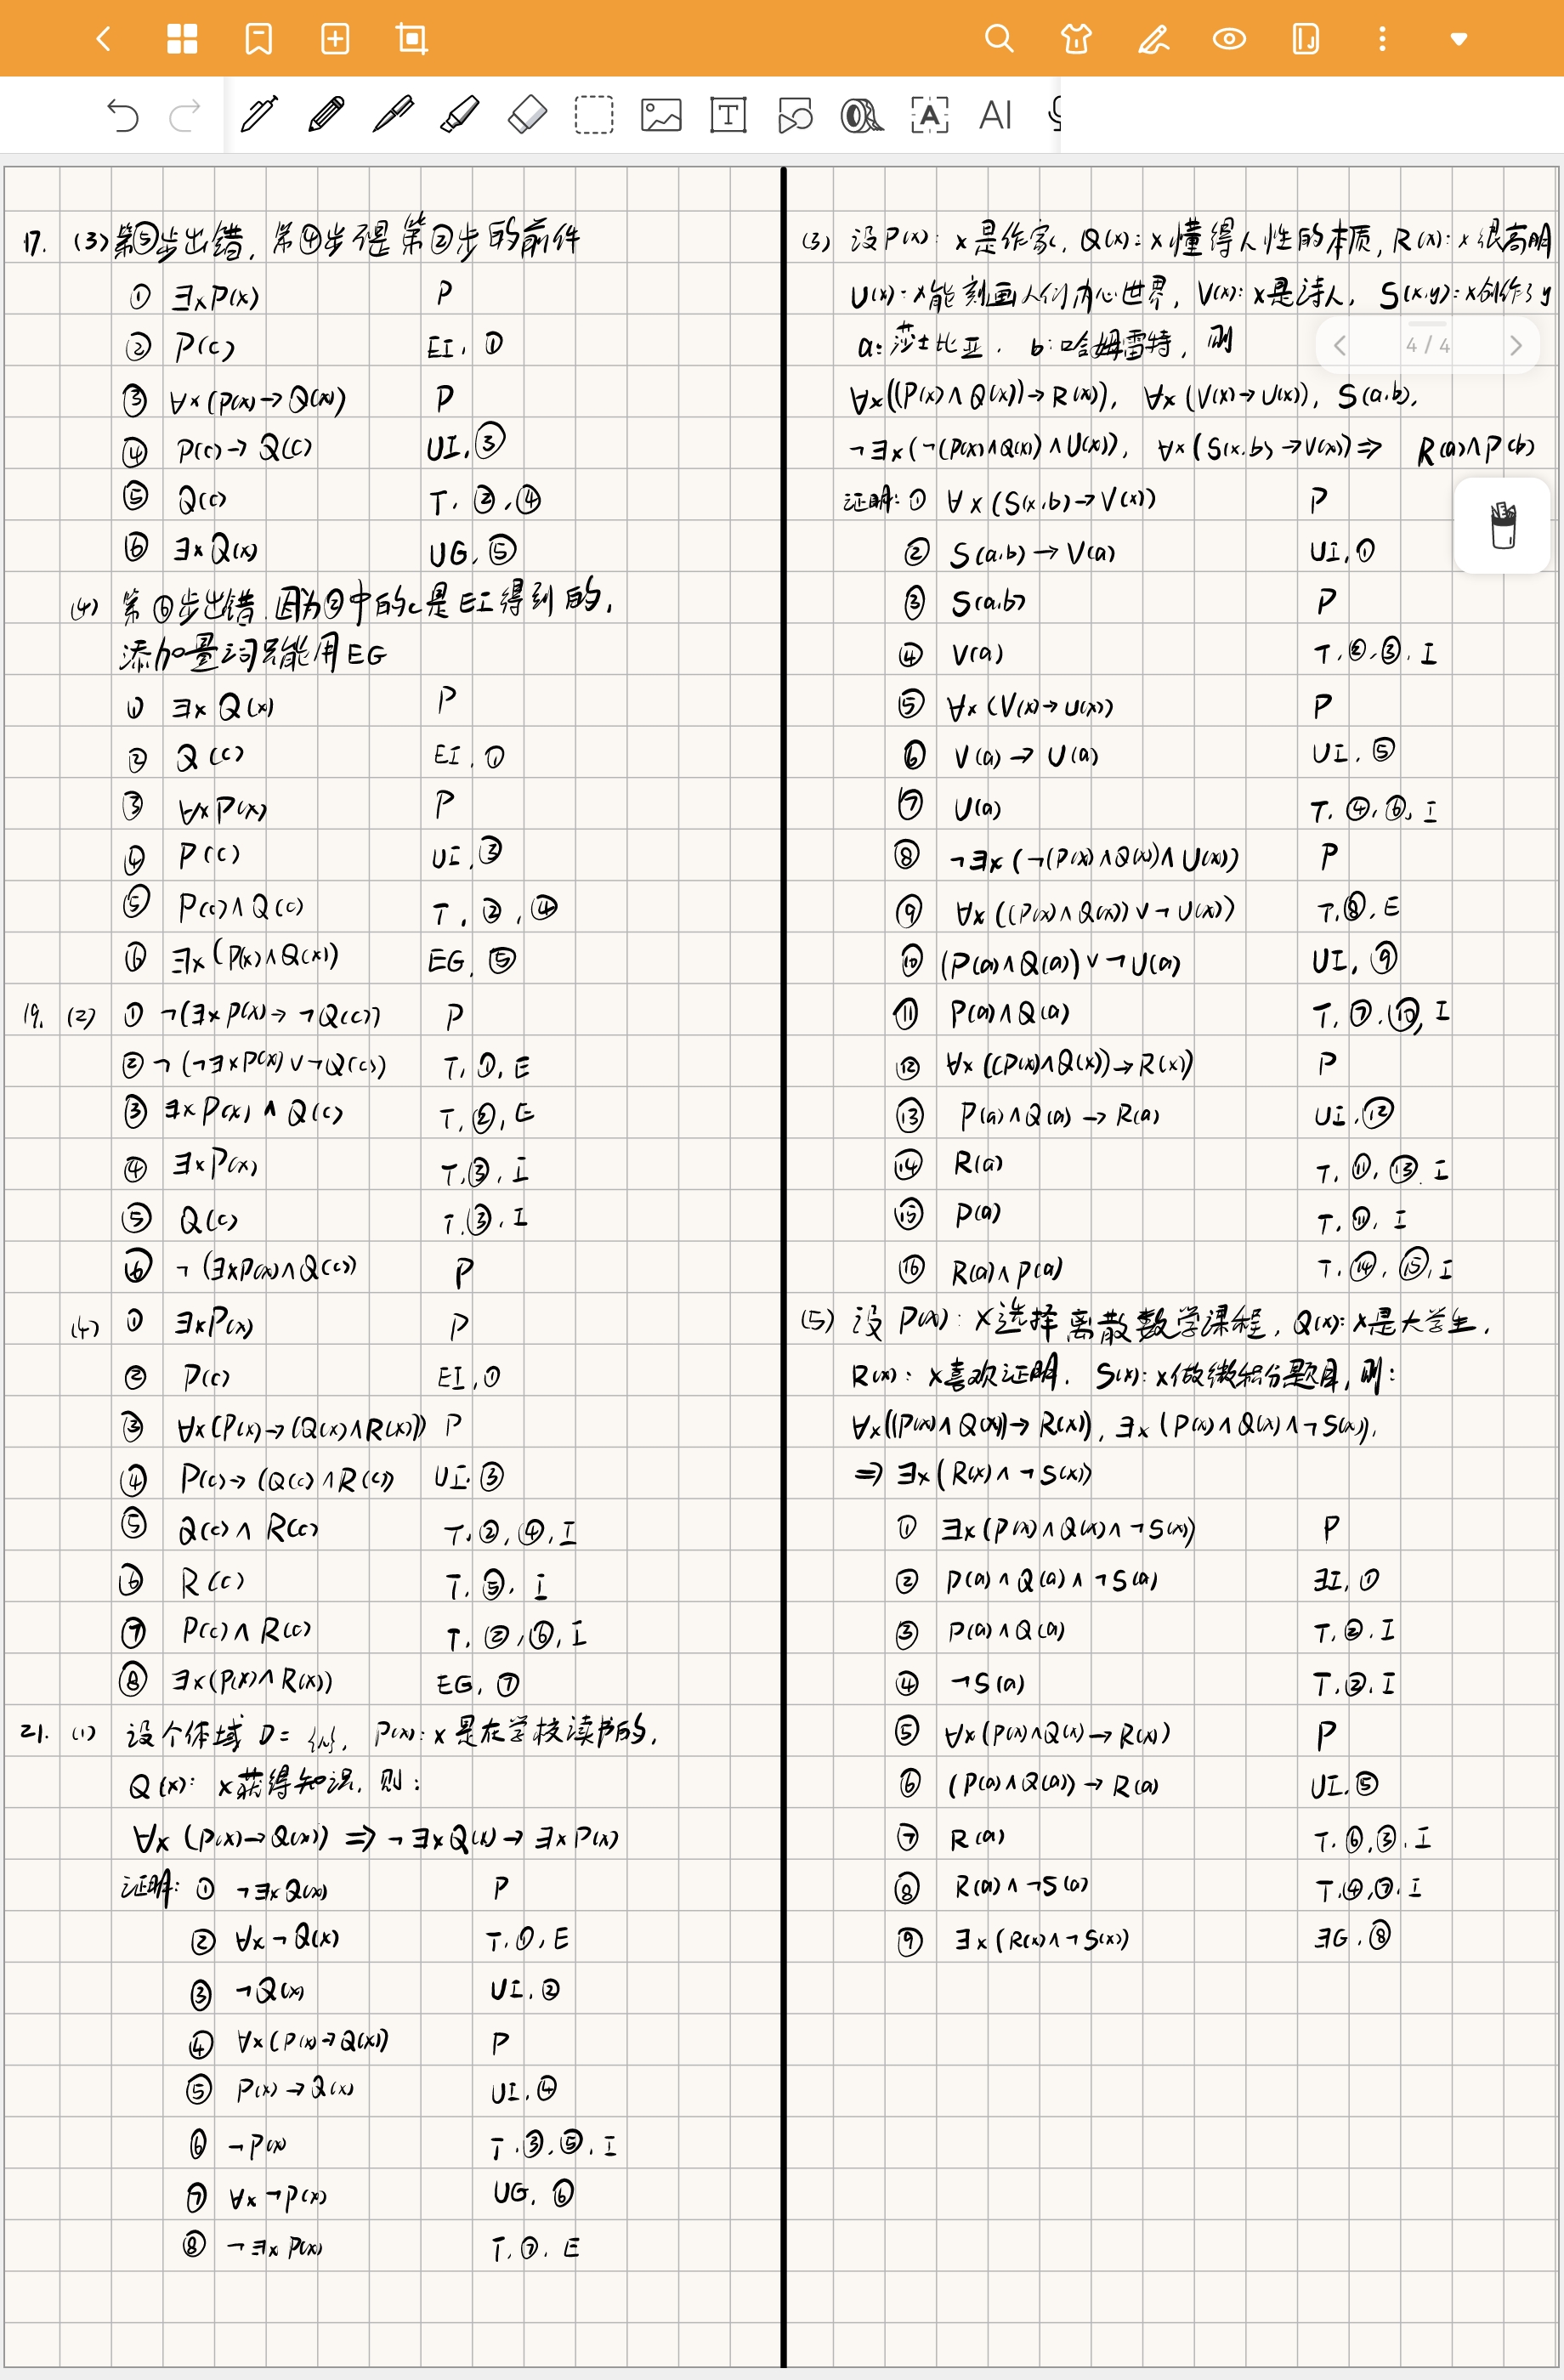 17. (3) 第⑤步出错, 第④步不是第②步的前件
① ∃xP(x) P
② P(c) EI, ①
③ ∀x(P(x)→Q(x)) P
④ P(c)→Q(c) UI, ③
⑤ Q(c) T, ②, ④
⑥ ∃xQ(x) UG, ⑤
(4) 第⑥步出错, 因为②中的c是EI得到的,
添加量词只能用EG
① ∃xQ(x) P
② Q(c) EI, ①
③ ∀xP(x) P
④ P(c) UI, ③
⑤ P(c)∧Q(c) T, ②, ④
⑥ ∃x(P(x)∧Q(x)) EG, ⑤
19. (2) ① ¬(∃xP(x)→¬Q(c)) P
② ¬(¬∃xP(x)∨¬Q(c)) T, ①, E
③ ∃xP(x)∧Q(c) T, ②, E
④ ∃xP(x) T, ③, I
⑤ Q(c) T, ③, I
⑥ ¬(∃xP(x)∧Q(c)) P
(4) ① ∃xP(x) P
② P(c) EI, ①
③ ∀x(P(x)→(Q(x)∧R(x))) P
④ P(c)→(Q(c)∧R(c)) UI, ③
⑤ Q(c)∧R(c) T, ②, ④, I
⑥ R(c) T, ⑤, I
⑦ P(c)∧R(c) T, ②, ⑥, I
⑧ ∃x(P(x)∧R(x)) EG, ⑦
21. (1) 设个体域 D= P(x): x是在学校读书的,
Q(x): x获得知识, 则:
∀x(P(x)→Q(x)) ⇒ ¬∃xQ(x)→∃xP(x)
证明: ① ¬∃xQ(x) P
② ∀x¬Q(x) T, ①, E
③ ¬Q(x) UI, ②
④ ∀x(P(x)→Q(x)) P
⑤ P(x)→Q(x) UI, ④
⑥ ¬P(x) T, ③, ⑤, I
⑦ ∀x¬P(x) UG, ⑥
⑧ ¬∃xP(x) T, ⑦, E
(3) 设P(x): x是作家, Q(x): x懂得人性的本质, R(x): x很高明
U(x): x能刻画人们内心世界, V(x): x是诗人, S(x,y): x创作了y
a: 莎士比亚, b: 哈姆雷特, 则
4 / 4
∀x((P(x)∧Q(x))→R(x)), ∀x(V(x)→U(x)), S(a,b),
¬∃x(¬(P(x)∧Q(x))∧U(x)), ∀x(S(x,b)→V(x)) ⇒ R(a)∧P(b)
证明: ① ∀x(S(x,b)→V(x)) P
② S(a,b)→V(a) UI, ①
③ S(a,b) P
④ V(a) T, ②, ③, I
⑤ ∀x(V(x)→U(x)) P
⑥ V(a)→U(a) UI, ⑤
⑦ U(a) T, ④, ⑥, I
⑧ ¬∃x(¬(P(x)∧Q(x))∧U(x)) P
⑨ ∀x((P(x)∧Q(x))∨¬U(x)) T, ⑧, E
⑩ (P(a)∧Q(a))∨¬U(a) UI, ⑨
⑪ P(a)∧Q(a) T, ⑦, ⑩, I
⑫ ∀x((P(x)∧Q(x))→R(x)) P
⑬ P(a)∧Q(a)→R(a) UI, ⑫
⑭ R(a) T, ⑪, ⑬, I
⑮ P(a) T, ⑪, I
⑯ R(a)∧P(a) T, ⑭, ⑮, I
(5) 设P(x): x选择离散数学课程, Q(x): x是大学生,
R(x): x喜欢证明, S(x): x做微积分题目, 则:
∀x((P(x)∧Q(x))→R(x)), ∃x(P(x)∧Q(x)∧¬S(x)),
⇒ ∃x(R(x)∧¬S(x))
① ∃x(P(x)∧Q(x)∧¬S(x)) P
② P(a)∧Q(a)∧¬S(a) ∃I, ①
③ P(a)∧Q(a) T, ②, I
④ ¬S(a) T, ②, I
⑤ ∀x(P(x)∧Q(x)→R(x)) P
⑥ (P(a)∧Q(a))→R(a) UI, ⑤
⑦ R(a) T, ⑥, ③, I
⑧ R(a)∧¬S(a) T, ④, ⑦, I
⑨ ∃x(R(x)∧¬S(x)) ∃G, ⑧